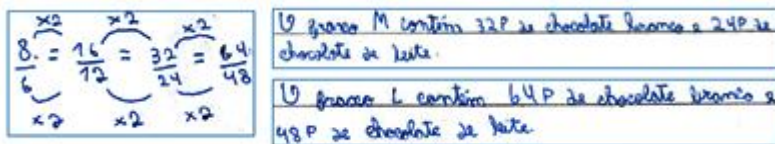 ×2 ×2 ×2
8/6 = 16/12 = 32/24 = 64/48
×2 ×2 ×2
O frasco M contém 32P de chocolate branco e 24P de
chocolate de leite.
O frasco L contém 64P de chocolate branco e
48P de chocolate de leite.